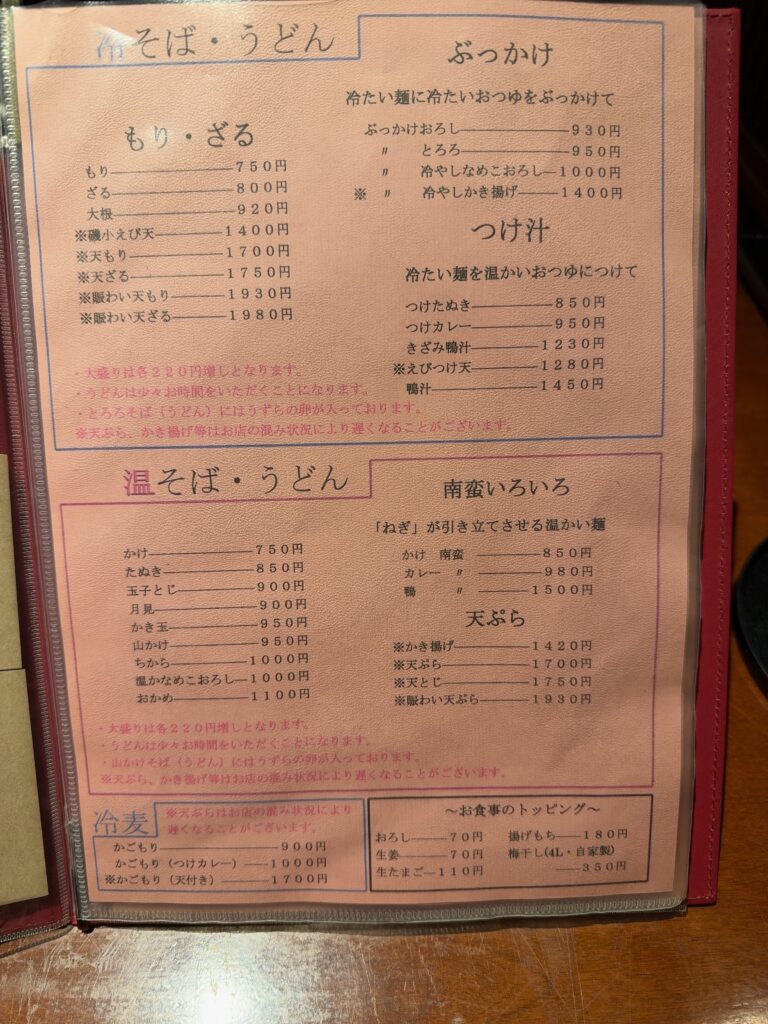 冷そば・うどん
もり・ざる
もり――――――750円
ざる――――――800円
大根――――――920円
※磯小えび天――――1400円
※天もり――――――1700円
※天ざる――――――1750円
※賑わい天もり―――1930円
※賑わい天ざる―――1980円
ぶっかけ
冷たい麺に冷たいおつゆをぶっかけて
ぶっかけおろし――――――930円
〃 とろろ――――――950円
〃 冷やしなめこおろし―1000円
※ 〃 冷やしかき揚げ――1400円
つけ汁
冷たい麺を温かいおつゆにつけて
つけたぬき――――850円
つけカレー――――950円
きざみ鴨汁――――1230円
※えびつけ天――――1280円
鴨汁――――――1450円
・大盛りは各220円増しとなります。
・うどんは少々お時間をいただくことになります。
・とろろそば（うどん）にはうずらの卵が入っております。
※天ぷら、かき揚げ等はお店の混み状況により遅くなることがございます。
温そば・うどん
かけ――――――750円
たぬき―――――850円
玉子とじ――――900円
月見――――――900円
かき玉―――――950円
山かけ―――――950円
ちから――――1000円
温かなめこおろし―1000円
おかめ――――1100円
南蛮いろいろ
「ねぎ」が引き立てさせる温かい麺
かけ 南蛮 ――――850円
カレー 〃 ――――980円
鴨 〃 ――――1500円
天ぷら
※かき揚げ――――1420円
※天ぷら―――――1700円
※天とじ―――――1750円
※賑わい天ぷら――1930円
・大盛りは各220円増しとなります。
・うどんは少々お時間をいただくことになります。
・山かけそば（うどん）にはうずらの卵が入っております。
※天ぷら、かき揚げ等はお店の混み状況により遅くなることがございます。
冷麦
※天ぷらはお店の混み状況により
遅くなることがございます。
かごもり――――――――900円
かごもり（つけカレー）――1000円
※かごもり（天付き）――――1700円
～お食事のトッピング～
おろし―――70円
生姜――――70円
生たまご―110円
揚げもち――180円
梅干し(4L・自家製)
――――350円